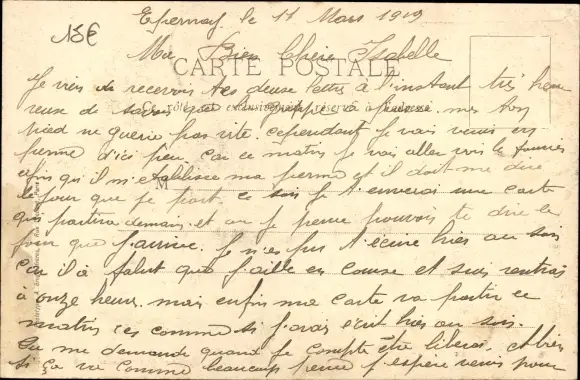 15€
Epernay le 11 Mars 1919
Ma Bien Chère Isabelle
CARTE POSTALE
Je vien de recevoir tes deux lettre à l'instant très heu
Ce côté est exclusivement réservé à l'adresse
reuse de savoir que la grippe a mes ton
pied ne guerie pas vite. cependant je vais venir en
perme d'ici peu. car ce matin je vais aller voir le fourrier
afin qu'il m'établisse ma perme et il doit me dire
M
le jour que je part. ce soir je t'enverai une carte
qui partira demain. et ou je pense pouvoir te dire le
jour que j'arrive. Je n'es pus t'écrire hier au soir
car il à falut que j'aille en course et suis rentrer
à onze heure. mais enfin ma carte va partir ce
matin ces comme si j'avais écrit hier au soir.
Tu me demande quand je compte être liberai. et bien
si ça va comme beaucoup pense j'espère venir pour